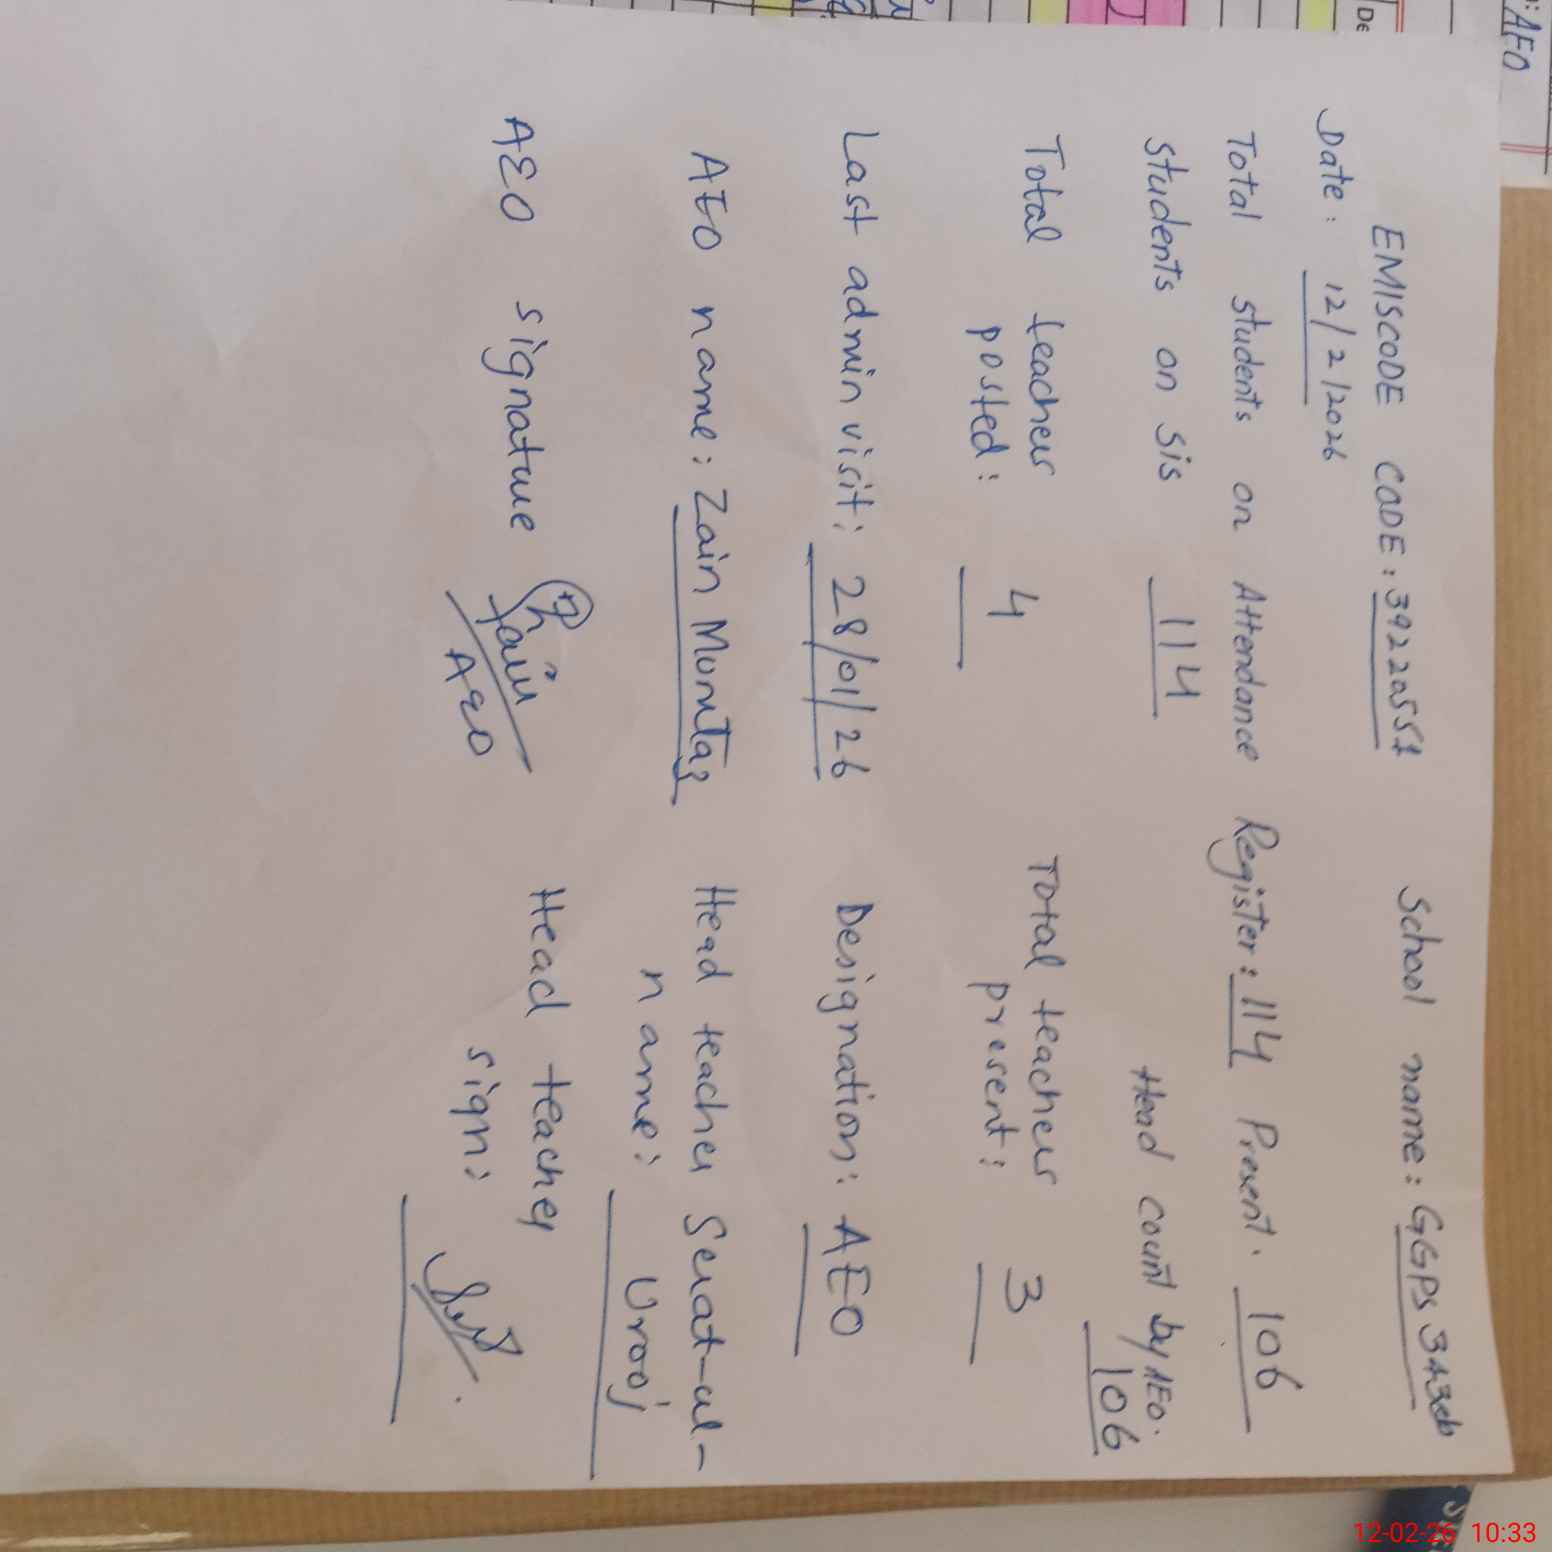 : AEO
DE
EMISCODE CODE: 39220551 School name: GGPS 343eb
Date: 12/2/2026
Total students on Attendance Register: 114 Present. 106
students on sis 114 Head count by AEO. 106
Total teachers posted: 4 Total teachers present: 3
Last admin visit: 28/01/26 Designation: AEO
AEO name: Zain Mumtaz Head teacher name: Serat-ul-Urooj
AEO signature Zain AEO Head teacher sign:
12-02-26 10:33